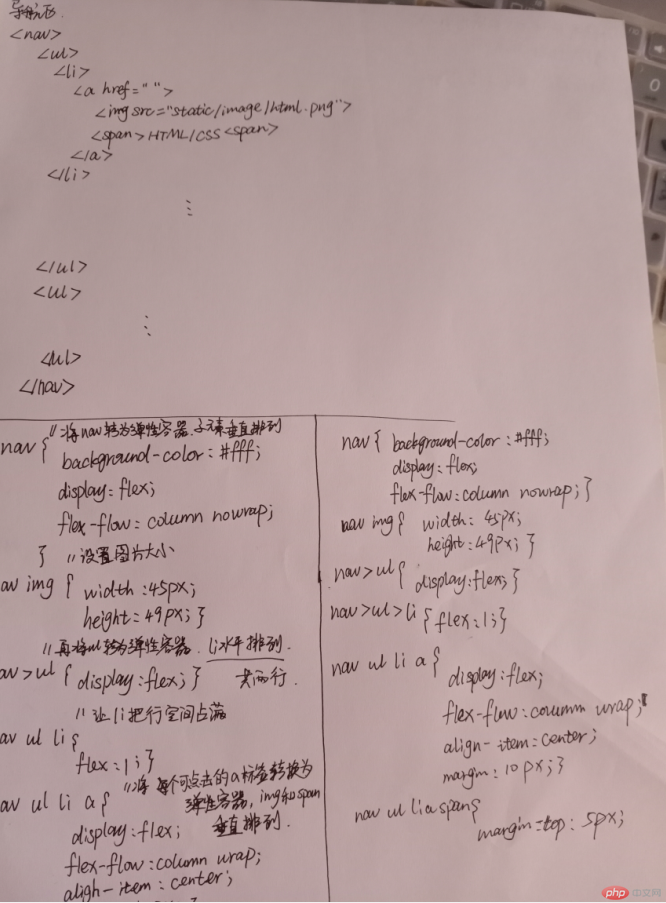 导航区
<nav>
<ul>
<li>
<a href="">
<img src="static/image/html.png">
<span>HTML/CSS<span>
</a>
</li>
⋮
</ul>
<ul>
⋮
<ul>
</nav>
//将nav转为弹性容器.子元素垂直排列
nav {
background-color: #fff;
display: flex;
flex-flow: column nowrap;
} //设置图片大小
av img { width: 45px;
height: 49px; }
//再将ul转为弹性容器. li水平排列.
av>ul { display: flex; } 共两行.
//让li把行空间占满
av ul li {
flex: 1; }
av ul li a { //将每个可点击的a标签转换为
弹性容器, img和span
display: flex; 垂直排列.
flex-flow: column wrap;
aligh-item: center;
nav { background-color: #fff;
display: flex;
flex-flow: column nowrap; }
nav img { width: 45px;
height: 49px; }
nav>ul { display: flex; }
nav>ul>li { flex: 1; }
nav ul li a {
display: flex;
flex-flow: column wrap;
align-item: center;
margin: 10px; }
nav ul li a span {
margin-top: 5px;
php 中文网